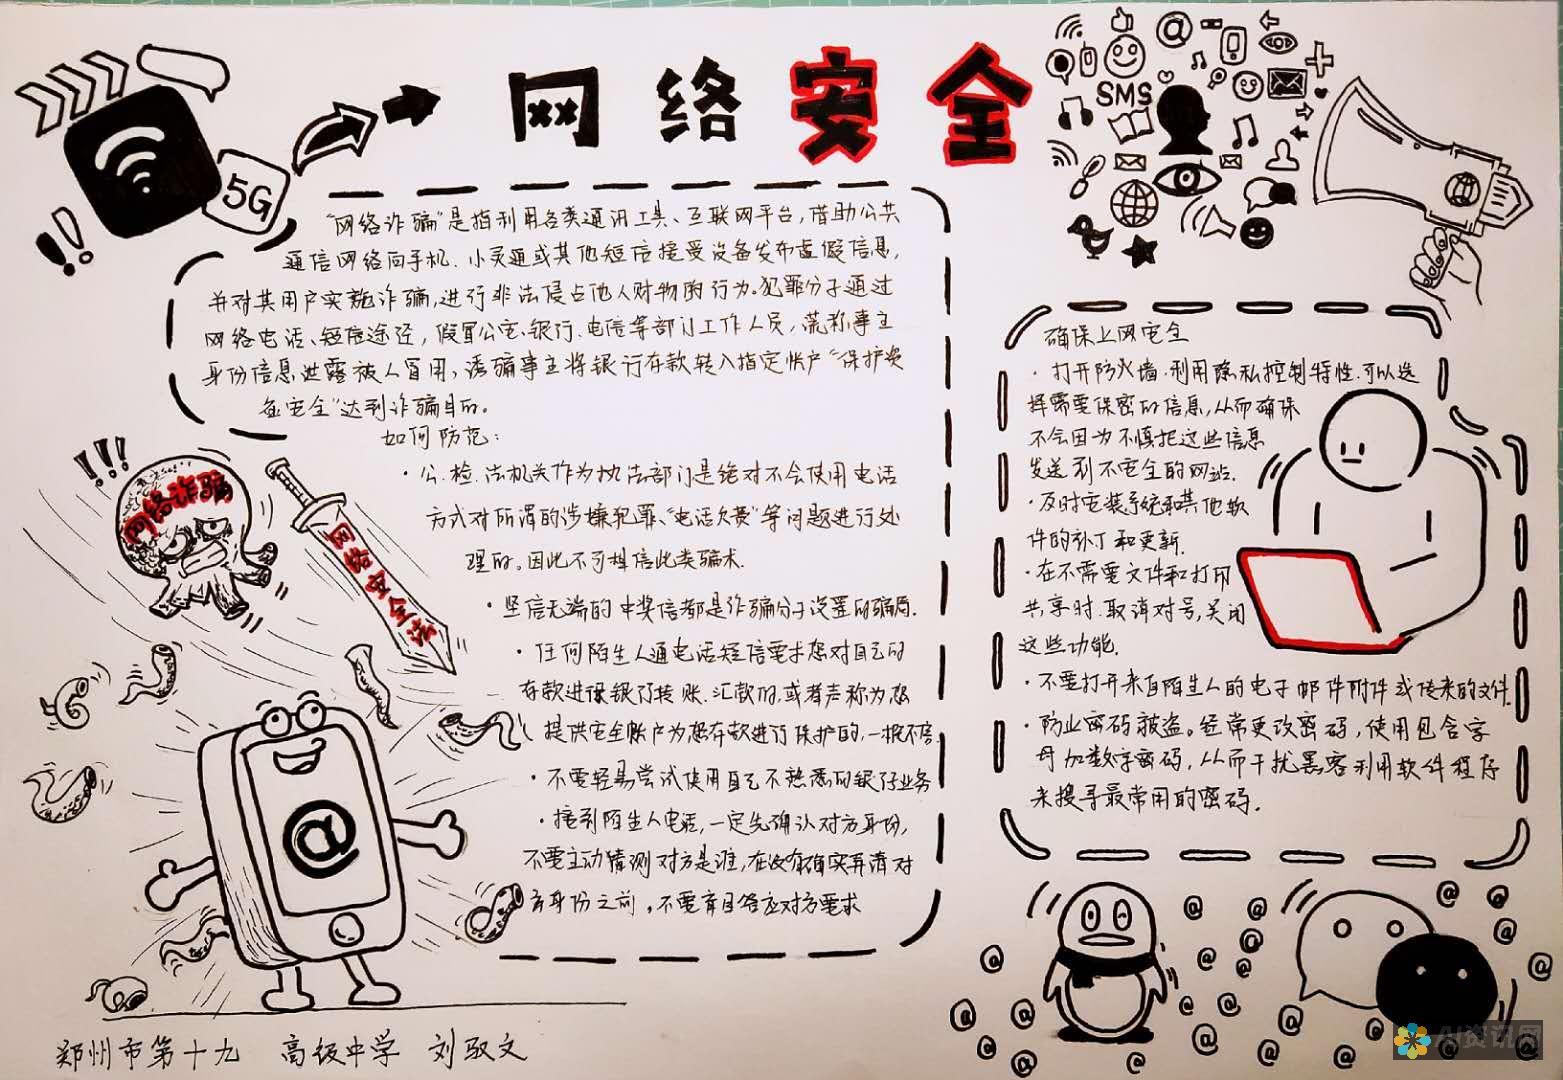 网络安全
5G
SMS
"网络诈骗"是指利用各类通讯工具、互联网平台,借助公共
通信网络向手机、小灵通或其他短信接受设备发布虚假信息,
并对其用户实施诈骗,进行非法侵占他人财物的行为。犯罪分子通过
网络电话、短信途径,假冒公安、银行、电信等部门工作人员,谎称事主
身份信息泄露被人冒用,诱骗事主将银行存款转入指定帐户"保护资
金安全"达到诈骗目的。
如何防范:
·公、检、法机关作为执法部门是绝对不会使用电话
方式对所谓的涉嫌犯罪、"电话欠费"等问题进行处
理的。因此不可相信此类骗术.
·坚信无端的中奖信都是诈骗分子设置的骗局.
·任何陌生人通电话短信要求您对自己的
存款进行银行转账、汇款的,或者声称为您
提供安全账户为您存款进行保护的,一概不信
·不要轻易尝试使用自己不熟悉的银行业务
·接到陌生人电话,一定先确认对方身份,
不要主动猜测对方是谁,在没有确实弄清对
方身份之前,不要盲目答应对方要求
网络诈骗
网络安全法
@
确保上网安全
·打开防火墙.利用隐私控制特性.可以选
择需要保密的信息,从而确保
不会因为不慎把这些信息
发送到不安全的网站.
·及时安装系统和其他软
件的补丁和更新.
·在不需要文件和打印
共享时.取消对号,关闭
这些功能.
·不要打开来自陌生人的电子邮件附件或传来的文件.
·防止密码被盗。经常更改密码,使用包含字
母加数字密码,从而干扰黑客利用软件程序
来搜寻最常用的密码.
郑州市第十九 高级中学 刘驭文
AI资讯网